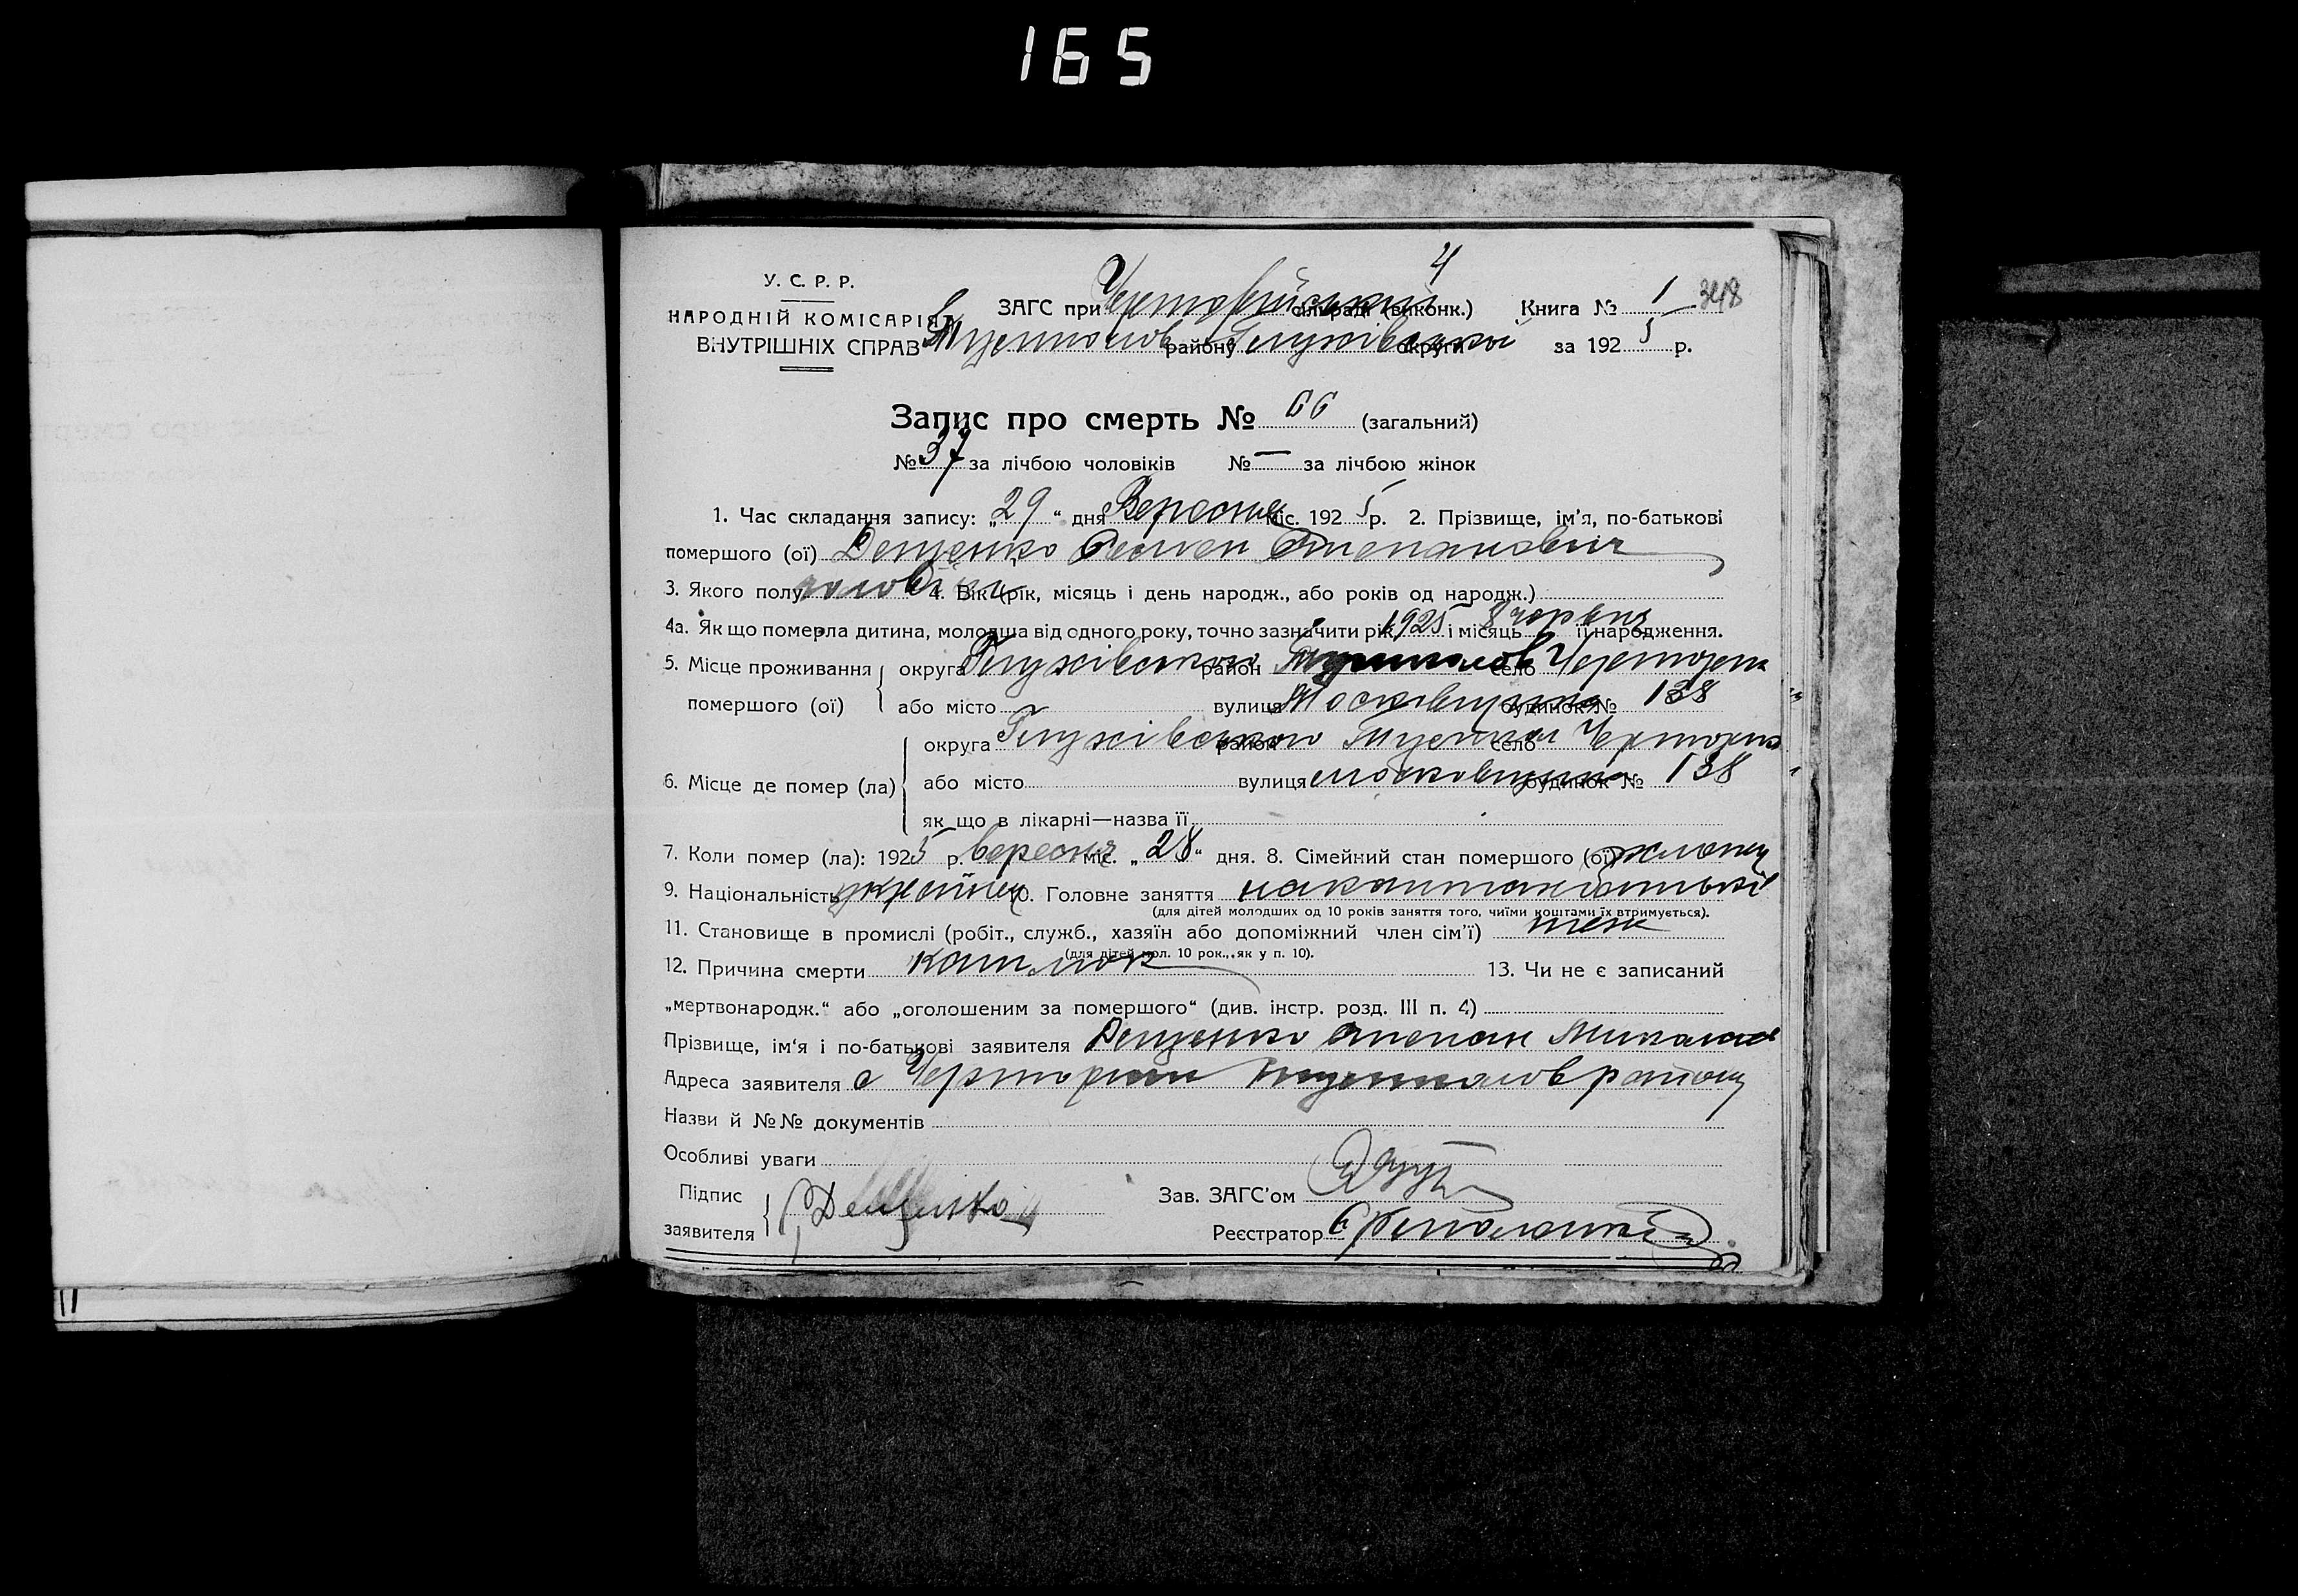 165
У. С. Р. Р.
НАРОДНІЙ КОМІСАРІЯТ
ВНУТРІШНІХ СПРАВ
4
ЗАГС при сільраді (виконк.) Книга № 1 348
району Глухівської округи за 1925 р.
Запис про смерть № 66 (загальний)
№ 37 за лічбою чоловіків № — за лічбою жінок
1. Час складання запису: „29“ дня Вересня міс. 1925 р. 2. Прізвище, ім'я, по-батькові
помершого (ої) Дещенко Степанович
3. Якого полу 4. Вік (рік, місяць і день народж., або років од народж.)
4а. Як що померла дитина, молодша від одного року, точно зазначити рік 1925 і місяць 8 її народження.
5. Місце проживання округа Глухівського район село
помершого (ої) або місто вулиця Московщина будинок № 138
округа Глухівського район село
6. Місце де помер (ла) або місто вулиця московщина будинок № 138
як що в лікарні—назва її
7. Коли помер (ла): 1925 р. вересня міс. „28“ дня. 8. Сімейний стан помершого (ої) хлопец
9. Національність украінец 10. Головне заняття
(для дітей молодших од 10 років заняття того, чиїми коштами їх втримується).
11. Становище в промислі (робіт., служб., хазяїн або допоміжний член сім'ї) теж
(для дітей мол. 10 рок., як у п. 10).
12. Причина смерти кашлюк 13. Чи не є записаний
„мертвонародж.“ або „оголошеним за помершого“ (див. інстр. розд. III п. 4)
Прізвище, ім'я і по-батькові заявителя Дещенко Степан
Адреса заявителя с району
Назви й №№ документів
Особливі уваги
Підпис
заявителя
Зав. ЗАГС'ом
Реєстратор